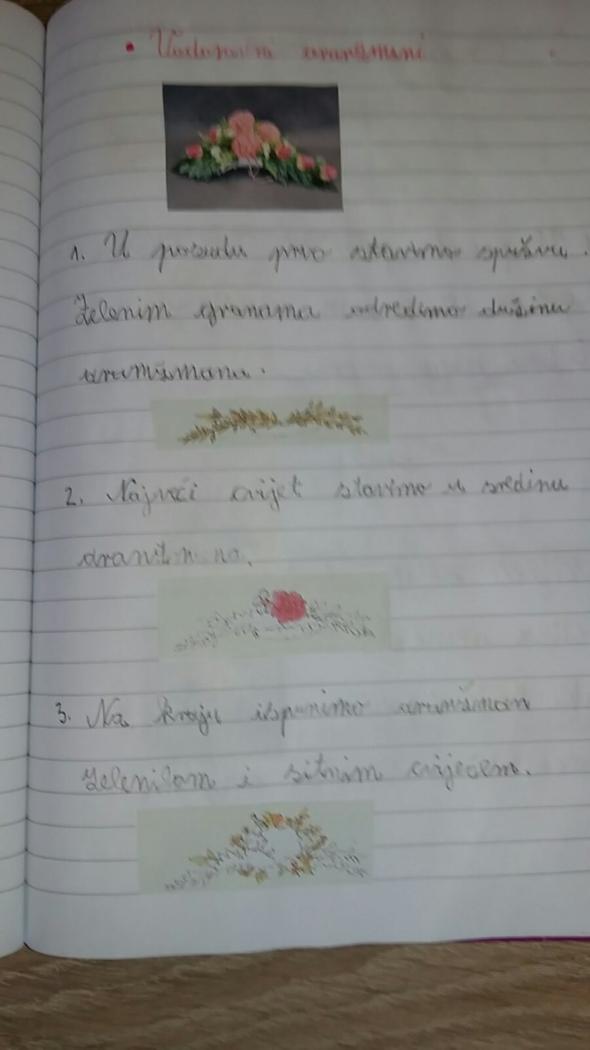 • Vodoravni aranžmani
1. U posudu prvo stavimo spužvu.
Zelenim granama odredimo dužinu
aranžmana.
2. Najveći cvijet stavimo u sredinu
3. Na kraju ispunimo aranžman
zelenilom i sitnim cvijećem.